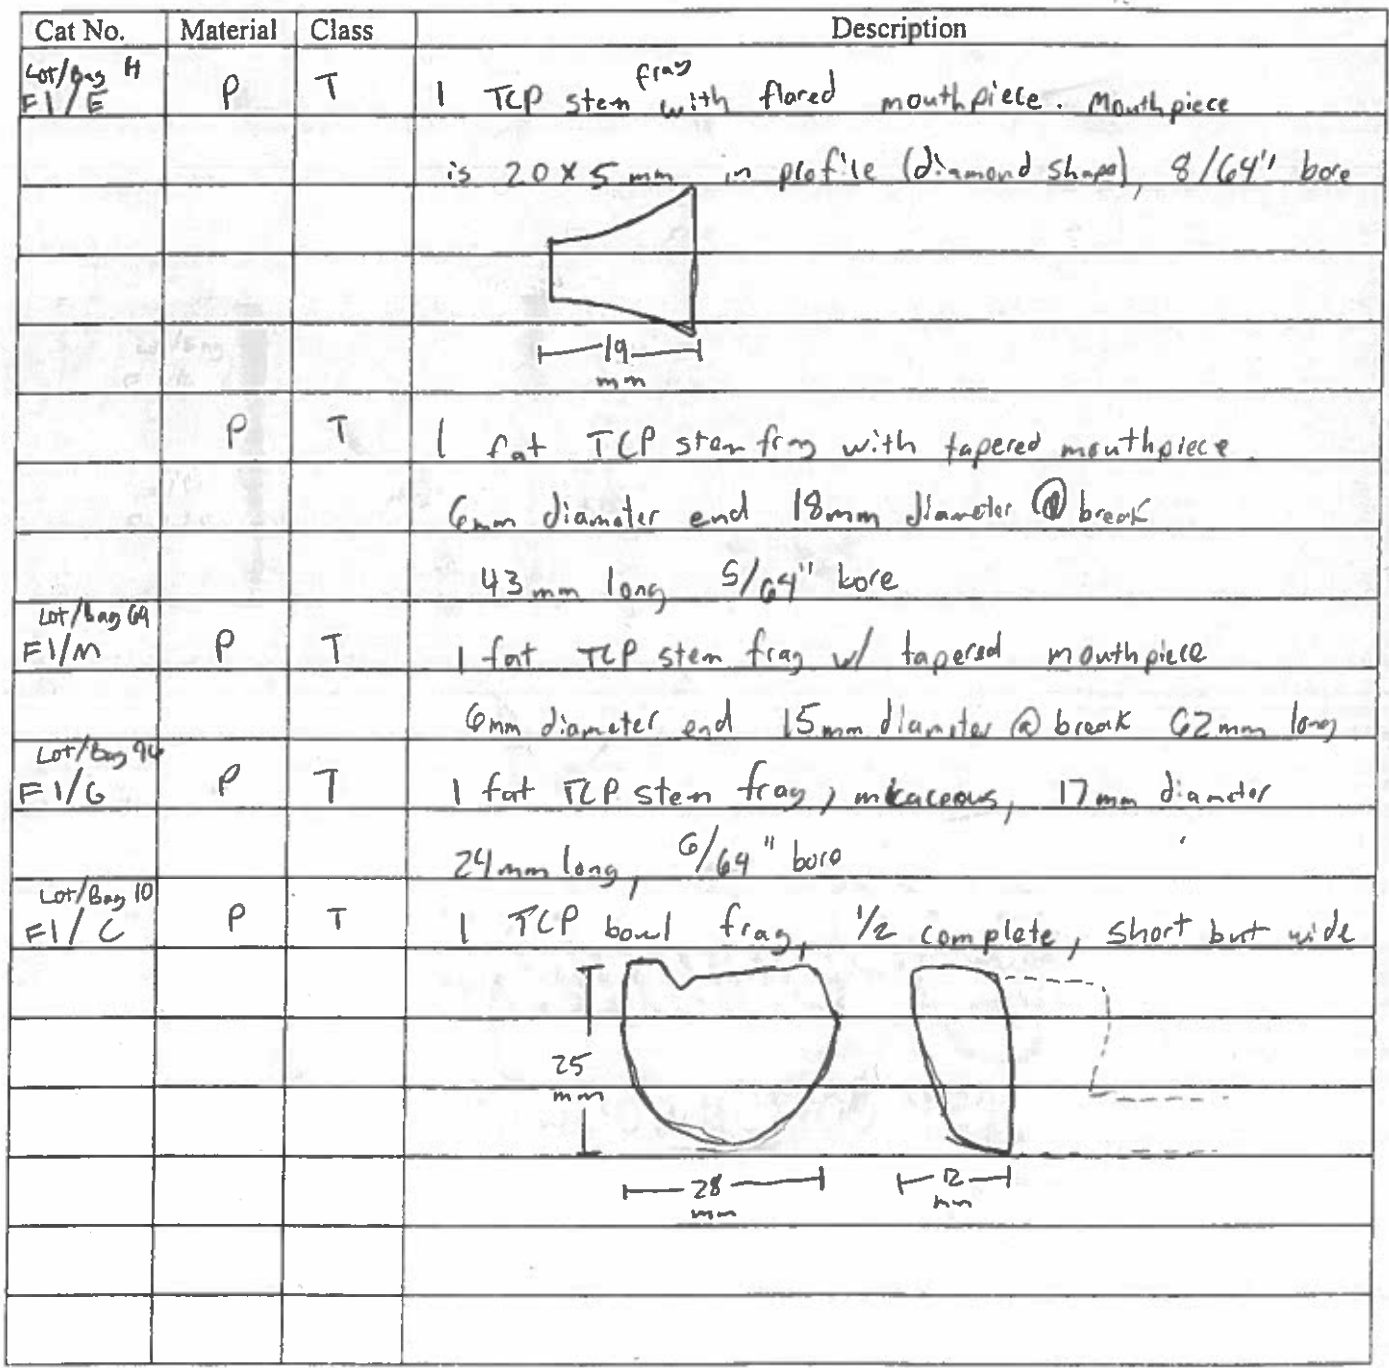 Cat No. Material Class Description
Lot/Bag H
frag
F1/E P T 1 TCP stem with flared mouthpiece. Mouthpiece
is 20 x 5 mm in profile (diamond shape), 8/64" bore
19
mm
P T 1 fat TCP stem frag with tapered mouthpiece.
6mm diameter end 18mm diameter @ break
43mm long 5/64" bore
Lot/bag 69
F1/M P T 1 fat TCP stem frag w/ tapered mouthpiece
6mm diameter end 15mm diameter @ break 62mm long
Lot/Bag
F1/G P T 1 fat TCP stem frag, micaceous, 17mm diameter
24mm long, 6/64" bore
Lot/Bag 10
F1/C P T 1 TCP bowl frag, 1/2 complete, short but wide
25
mm
28 12
mm mm